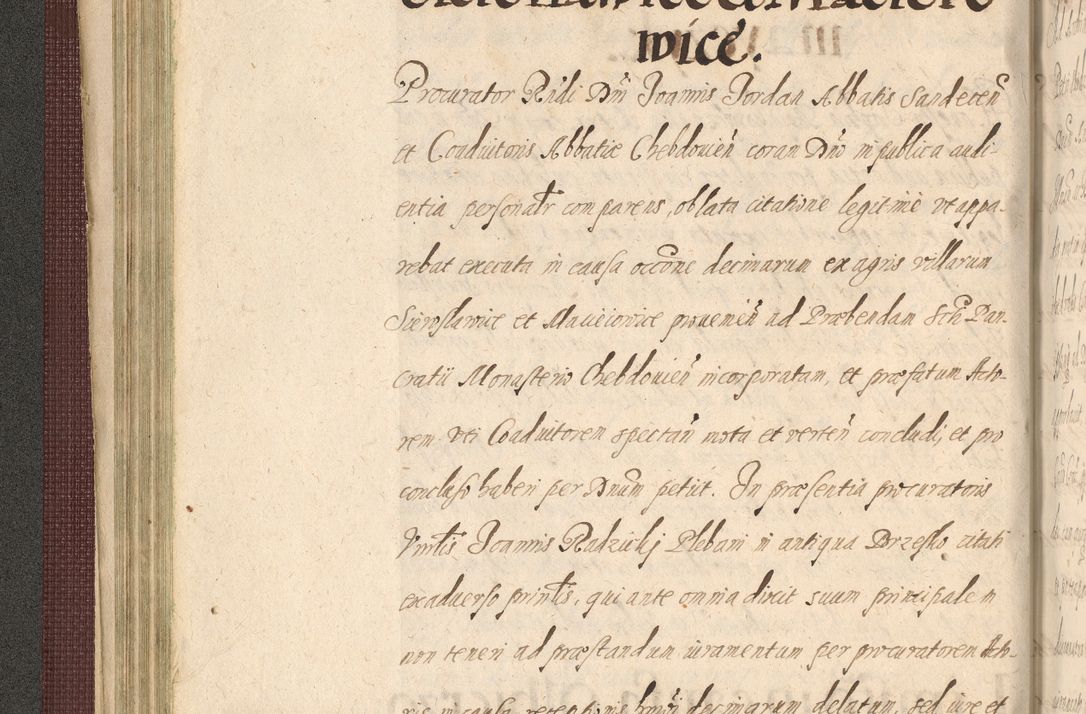 wice.
Procurator Rndi Dni Joannis Jordan Abbatis Sandecen
et Coadiutoris Abbatiæ Chebdovien coram Dno in publica audi-
entia personalr comparens, oblata citatione legitime vt appa-
rebat executa in causa occõne decimarum ex agris villarum
Sieroslawice et Macieiowice prouenien ad Præbendam Sti Pan-
cratii Monasterio Chebdouien incorporatam, et præfatum Acto-
rem vti Coadiutorem spectan mota et verten concludi, et pro
concluso haberi per Dnum petiit. In præsentia procuratoris
Vnrlis Joannis Radzicki Plebani in antiqua Brzesko citati
ex aduerso prinlis, qui ante omnia dixit suum principalem
non teneri ad præstandum iuramentum per procuratorem Acto-
ris in causa retentionis hmoi decimarum delatum, sed iure et